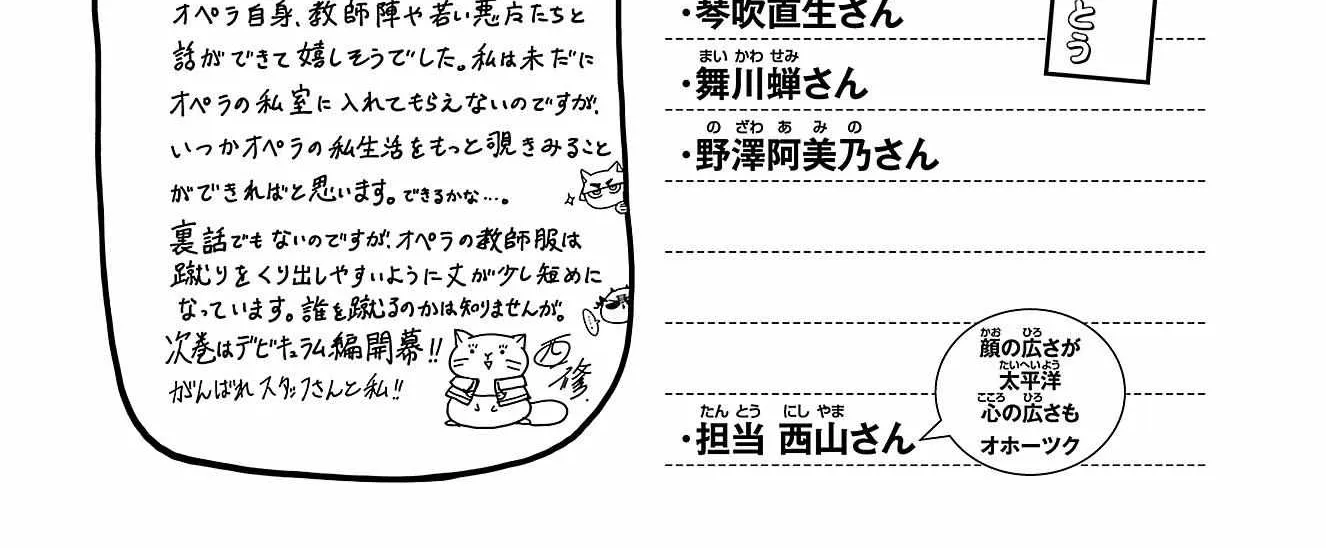 オペラ自身、教師陣や若い悪魔たちと
話ができて嬉しそうでした。私は未だに
オペラの私室に入れてもらえないのですが、
いつかオペラの私生活をもっと覗きみること
ができればと思います。できるかな…。
裏話でもないのですが、オペラの教師服は
蹴りをくり出しやすいように丈が少し短めに
なっています。誰を蹴るのかは知りませんが。
次巻はデビキュラム編開幕!!
がんばれスタッフさんと私!!
西修
・琴吹直生さん
まい かわ せみ
・舞川蝉さん
の ざわ あ み の
・野澤阿美乃さん
たん とう にし やま
・担当 西山さん
とう
かお ひろ
顔の広さが
たいへいよう
太平洋
こころ ひろ
心の広さも
オホーツク